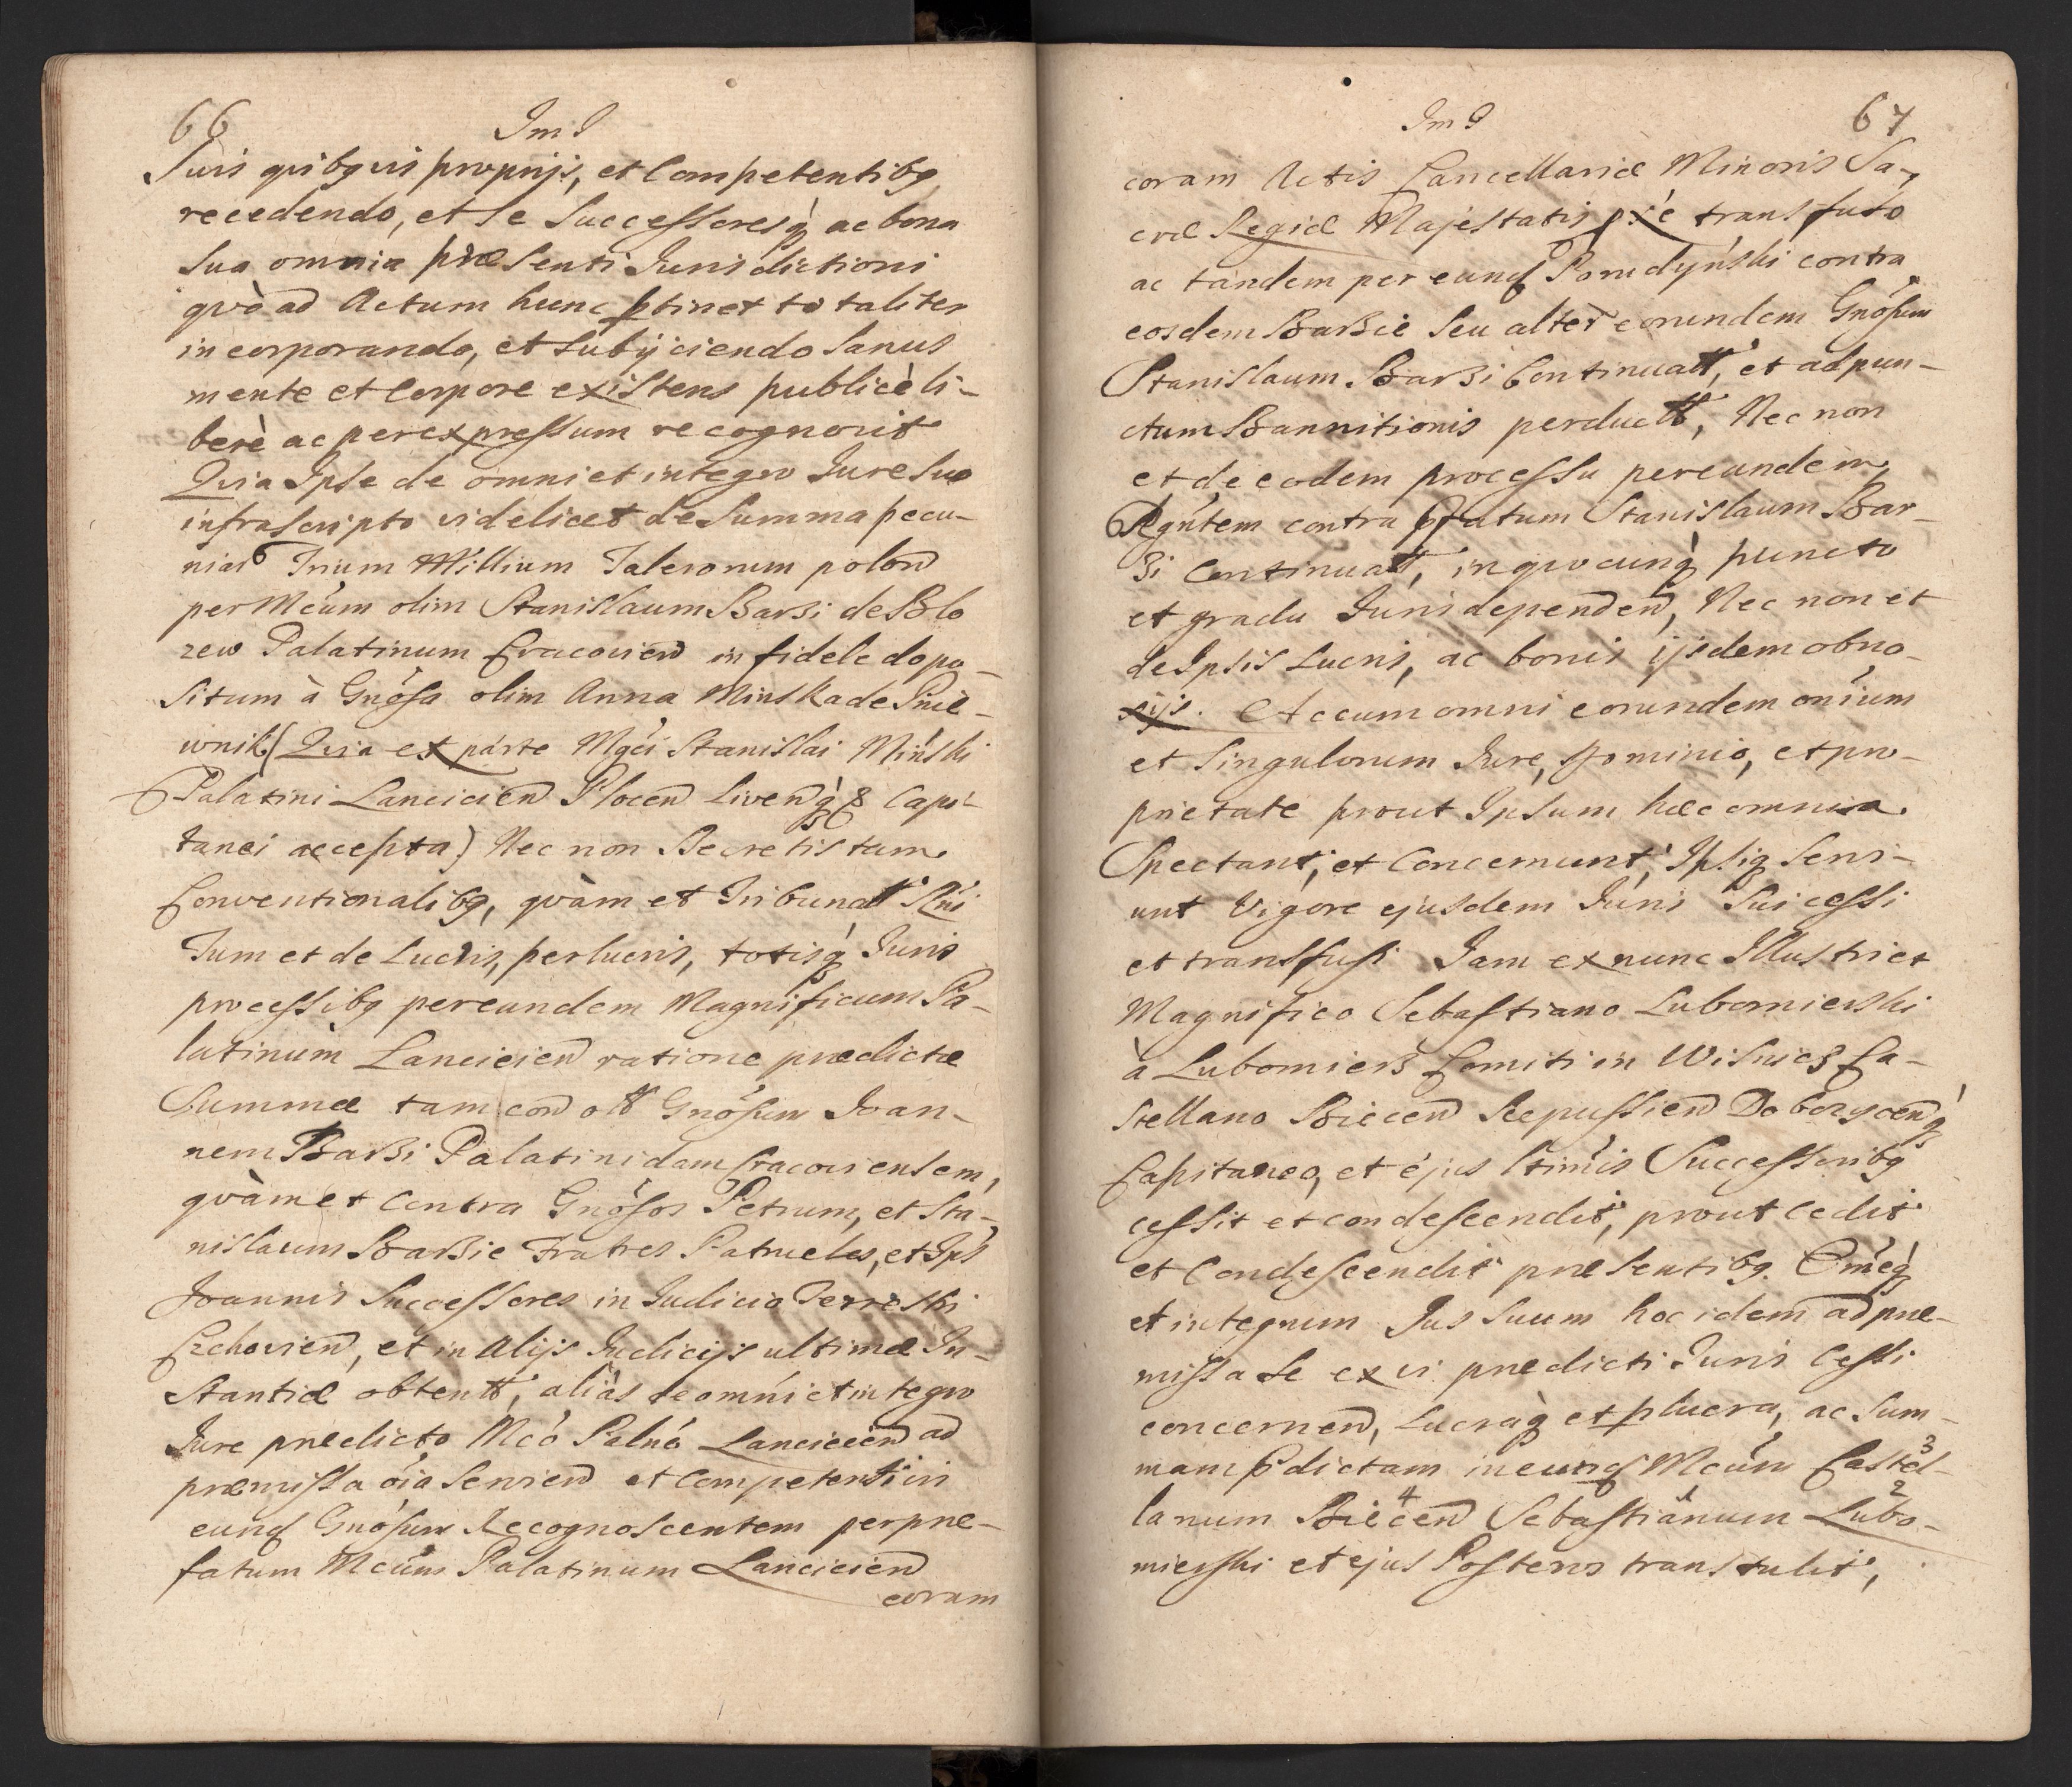 66 Im I
Juris quibq vis proprijs, et Competentibq
recedendo, et se Successoresq́ ac bona
sua omnia præsenti Jurisdictioni
qvò ad Actum hunc ptinet totaliter
incorporando, et subijciendo sanus
mente et Corpore existens publicè li-
berè ac per expressum recognovit
Qvia Ipse de omni et integro Jure Suo
infrascripto videlicet de Summa pecu-
niar Trium Millium Talerorum polon
per Mcúm olim Stanislaum Barzi de Blo
zew Palatinum Cracovien in fidele depo-
situm à Gnósa olim Anna Minska de Pnie-
wnik (Qvia ex parte Mgci Stanislai Minski
Palatini Lancicien Plocen Livenq́ & Capi-
tanei accepta) Nec non Decretis tum
Conventionalibq, qvàm et Tribunall Rńi
Tum et de Lucris, perlucris, totisq́ Juris
processibq per eundem Magnificum Pa-
latinum Lancicien ratione prædictæ
Summæ tam con oll Gnósum Joan-
nem Barzi Palatinidam Cracoviensem,
qvàm et Contra Gnósos Petrum, et Sta-
nislaum Barzie Fratres Patrueles, et Ips
Joannis Successores in Judicio Terrestri
Czchovien, et in Alijs Judicijs ultimæ In-
stantiæ obtentt, aliàs de omńi et integro
Jure prædicto Mcó Palnó Lancicien ad
præmissa óia servien et Competenti in
eunď Gnósum Recognoscentem per præ-
fatum Mcúm Palatinum Lancicien
coram
Im I 67
coram Actis Cancellariæ Minoris Sa-
cræ Regiæ Majestatis pxé transfuso
ac tandem per eunď Porudyński contra
eosdem Barzie seu alter eorundem Gnósum
Stanislaum Barzi Continuatt, et ad pun-
ctum Bannitionis perductt, Nec non
et de eodem processu per eundem
Rgńtem contra pfatum Stanislaum Bar-
zi Continuatt, in qvocunq́ puncto
et gradu Juris dependen, Nec non et
de Ipsis Lucris, ac bonis ijsdem obno-
xijs. Ac cum omni eorundem oníum
et Singulorum Jure, Dominio, et pro-
prietate prout Ipsum hæc omnia
Spectant, et Concernunt, Ipsiq Servi-
unt Vigore ejusdem Juris Sui cessi
et transfusi Jam ex nunc Illustri et
Magnifico Sebastiano Lubomierski
à Lubomierz Comiti in Wisnicz Ca-
stellano Biecen Scepussien Dobczycenq́
Capitaneo, et ejus ltimis Successoribq
cessit et condescendit, prout cedit
et Condescendit præsentibq. Omeq́
et integrum Jus Suum hoc idem ad præ-
missa se ex vi prædicti Juris Cessi
concernen, Lucraq́ et plucra, ac Sum-
mam pdictam in eunď Mcúm Castel³-
lanum Biecen⁴ Sebastianum¹ Lubo²-
mierski et ejus Posteros transtulit,